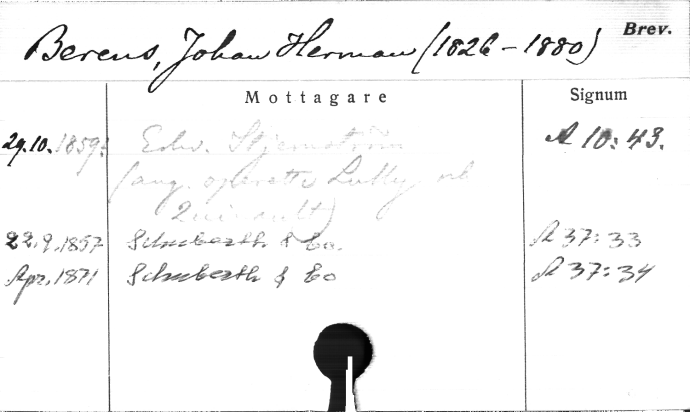 Berens, Johan Herman (1826-1880) Brev.
Mottagare Signum
29.10.1859: Edv. Stjernström A 10:43.
(ang. operette Lully och
Quinault)
22.9.1857 Schuberth & Co. A 37:33
Apr. 1871 Schuberth & Co A 37:34